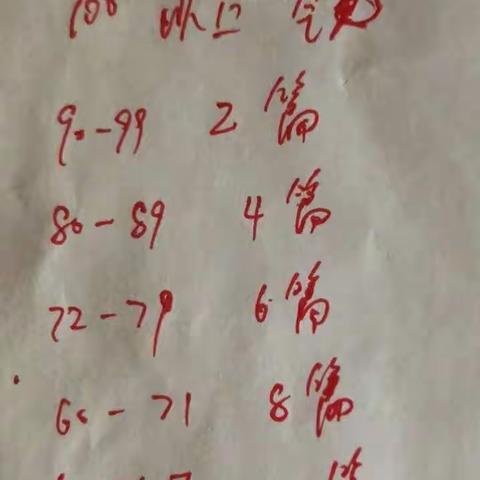 100
90-99 2篇
80-89 4篇
72-79 6篇
60-71 8篇
篇